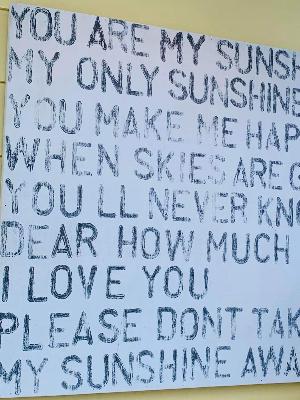 YOU ARE MY SUNSH
MY ONLY SUNSHINE
YOU MAKE ME HAP
WHEN SKIES ARE G
YOU LL NEVER KNO
DEAR HOW MUCH
I LOVE YOU
PLEASE DONT TAK
MY SUNSHINE AWA